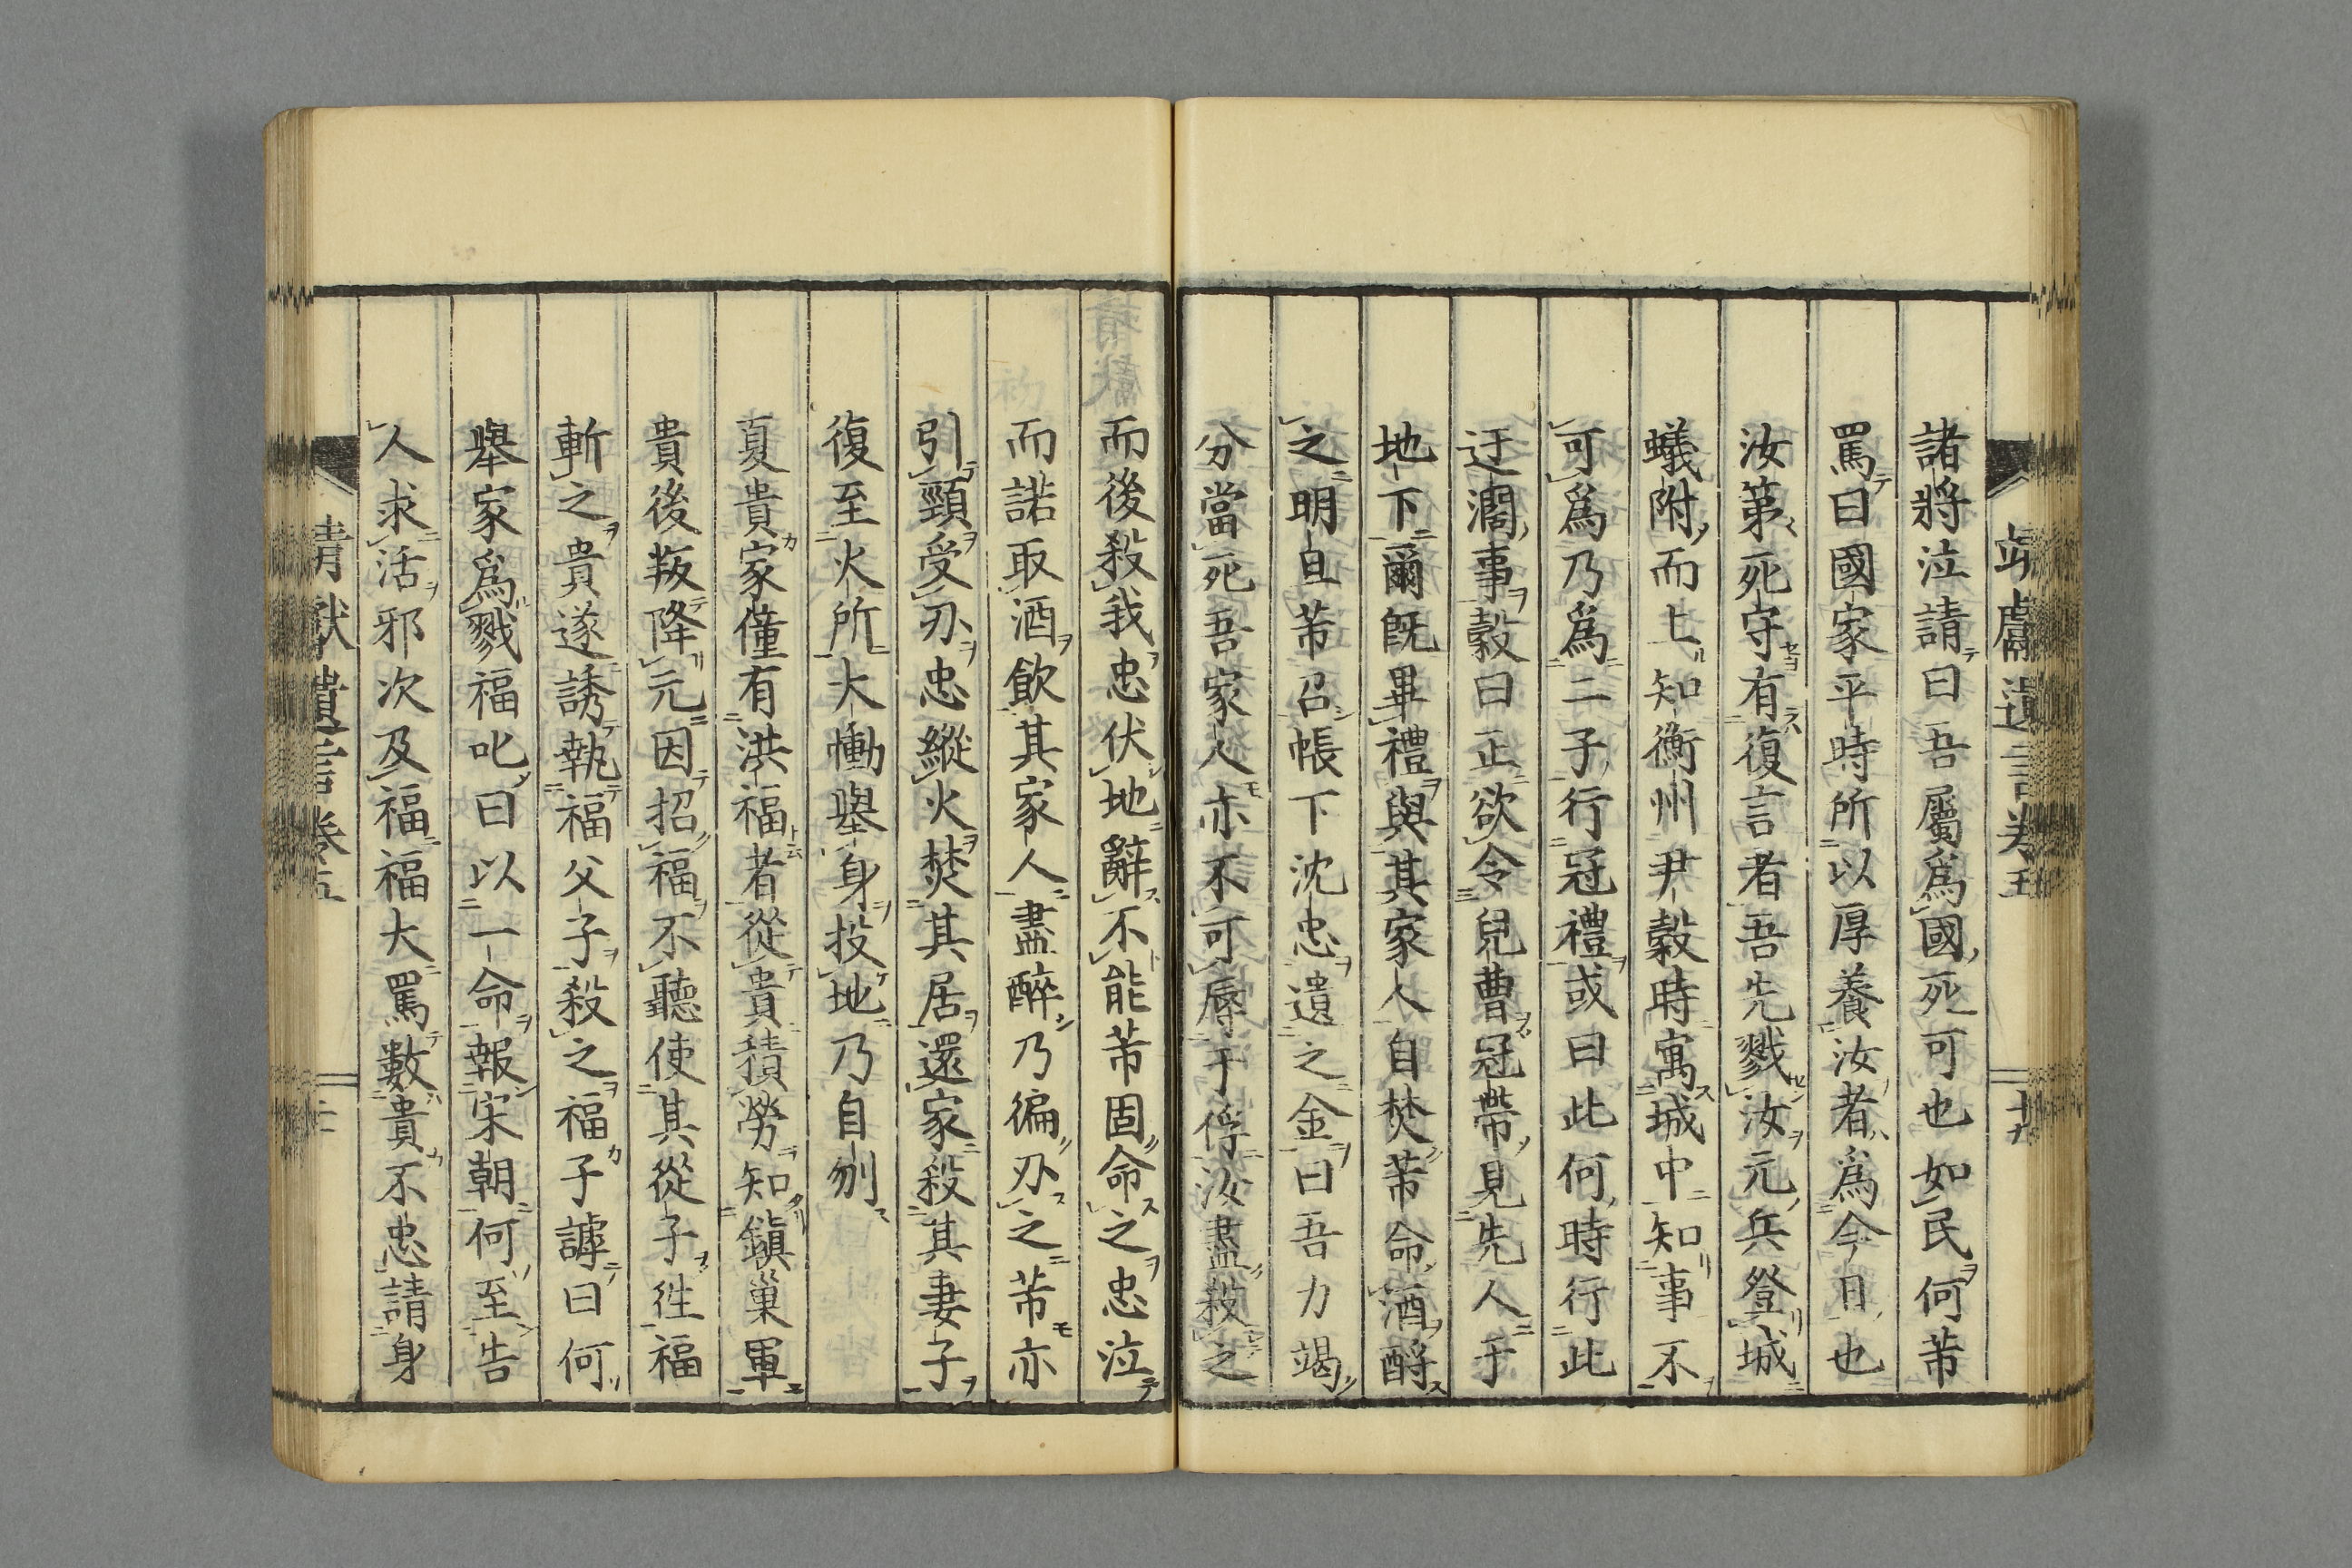 靖獻遺言卷五
十九
諸將泣請曰吾屬爲國死可也如民何芾
罵曰國家平時所以厚養汝者爲今日也
汝第死守有復言者吾先戮汝元兵登城
蟻附而上知衡州尹穀時寓城中知事不
可爲乃爲二子行冠禮或曰此何時行此
迂濶事穀曰正欲令兒曹冠帶見先人于
地下爾旣畢禮與其家人自焚芾命酒酹
之明旦芾召帳下沈忠遺之金曰吾力竭
分當死吾家人亦不可辱于俘汝盡殺之
而後殺我忠伏地辭不能芾固命之忠泣
而諾取酒飲其家人盡醉乃徧刃之芾亦
引頸受刃忠縱火焚其居還家殺其妻子
復至火所大慟舉身投地乃自刎
夏貴家僮有洪福者從貴積勞知鎭巢軍
貴後叛降元因招福不聽使其從子徃福
斬之貴遂誘執福父子殺之福子謼曰何
舉家爲戮福叱曰以一命報宋朝何至告
人求活邪次及福福大罵數貴不忠請身
靖獻遺言卷五